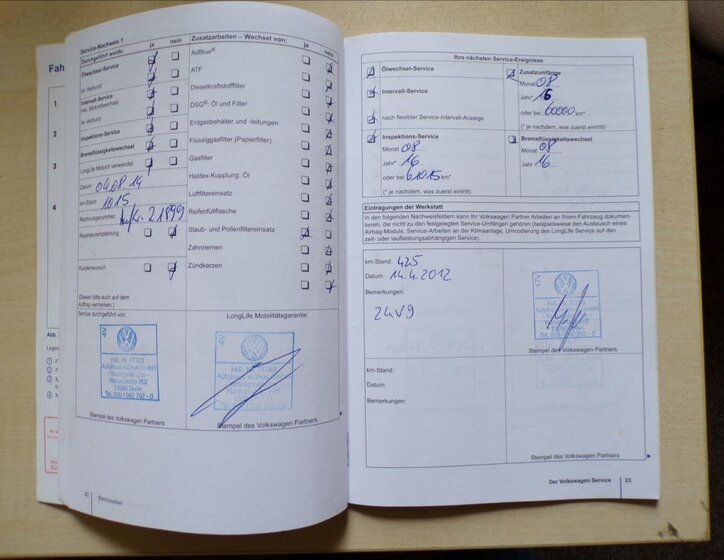 Fah
1
2
3
4
Abb.
Service-Nachweis 1
Durchgeführt wurde: ja nein
Ölwechsel-Service
im Verbund
Intervall-Service
inkl. Motorölwechsel
im Verbund
Inspektions-Service
Bremsflüssigkeitswechsel
LongLife Motoröl verwendet
Datum: 04.08.14
km-Stand: 1015
Rechnungsnummer: 21899
Reparaturempfehlung
Kundenwunsch
(Diesen bitte auch auf dem
Auftrag vermerken.)
Zusatzarbeiten – Wechsel von: ja nein
AdBlue®
ATF
Dieselkraftstofffilter
DSG®: Öl und Filter
Erdgasbehälter und -leitungen
Flüssiggasfilter (Papierfilter)
Gasfilter
Haldex-Kupplung: Öl
Luftfiltereinsatz
Reifenfüllflasche
Staub- und Pollenfiltereinsatz
Zahnriemen
Zündkerzen
Service durchgeführt von:
4V
Hdl.-Nr. 77783
13088 Berlin
Tel. 030 / 962 762 - 0
Stempel des Volkswagen Partners
LongLife Mobilitätsgarantie:
4V
Stempel des Volkswagen Partners
Serviceplan
Ihre nächsten Service-Ereignisse
Ölwechsel-Service
Intervall-Service
nach flexibler Service-Intervall-Anzeige
Zusatzumfänge
Monat 08
Jahr* 16
oder bei 60000 km*
(* je nachdem, was zuerst eintritt)
Inspektions-Service
Monat 08
Jahr* 16
oder bei 61015 km*
(* je nachdem, was zuerst eintritt)
Bremsflüssigkeitswechsel
Monat 08
Jahr 16
Eintragungen der Werkstatt
In den folgenden Nachweisfeldern kann Ihr Volkswagen Partner Arbeiten an Ihrem Fahrzeug dokumen-
tieren, die nicht zu den festgelegten Service-Umfängen gehören (beispielsweise den Austausch eines
Airbag-Moduls, Service-Arbeiten an der Klimaanlage, Umcodierung des LongLife Service auf den
zeit- oder laufleistungsabhängigen Service).
km-Stand: 425
Datum: 14.4.2012
Bemerkungen:
24V9
17V
Stempel des Volkswagen Partners
km-Stand:
Datum:
Bemerkungen:
Stempel des Volkswagen Partners
Der Volkswagen Service 23